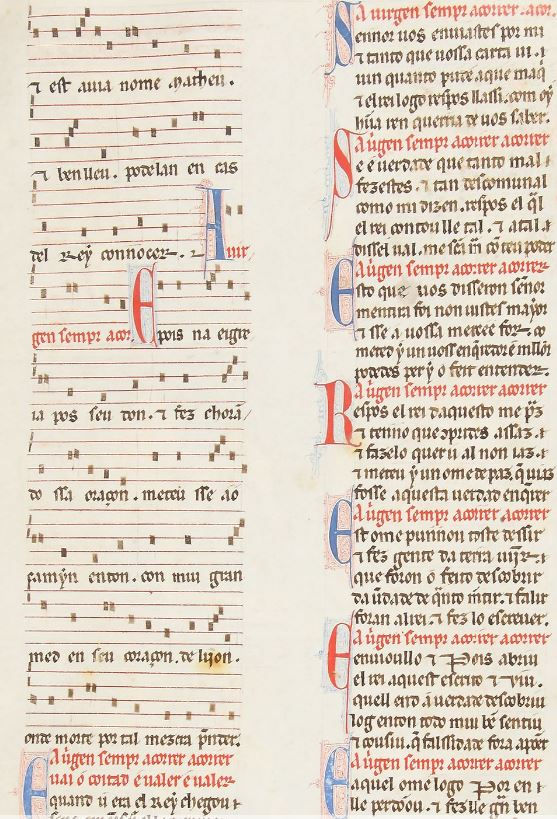 ⁊ est auia nome matheu.
⁊ ben lleu. podelan en cas
del Rey connocer.
A uir
gen sempr acor.
E pois na eigre
ia pos seu don. ⁊ fez chorã
do ssa oraçon. meteu sse ao
camỹn enton. con mui gran
med en seu coraçon. de lijon.
onde morte por tal mezcra prender.
A uirgen sempr acorrer acorrer
uai o coitad e ualer e ualer
E quand u era el Rey chegou ⁊
A uirgen sempr acorrer. acor.
Sennor uos enuiastes por mi
⁊ tanto que uossa carta ui. ⁊
uin quanto pude aque maq̃
⁊ el rei logo respos llassi. com oỹ
hũa ren querria de uos saber.
A uirgen sempr acorrer acorrer
Se é uerdade que tanto mal ⁊
fezestes. ⁊ tan descomunal
como mi dizen. respos el q̃l
el rei contou lle tal. ⁊ atal
dissel ual.
A uirgen sempr acorrer acorrer
Esto que uos disseron sennor
mentira foi non uistes mayor
⁊ sse a uossa mercee for.
meted y un uoss enqueredor
podedes per y o feit entender.
A uirgen sempr acorrer acorrer
Respos el rei daquesto me praz
⁊ tenno que assaz. ⁊
⁊ fazelo quer u al non iaz. ⁊
⁊ meteu y un ome de paz. que uaiz
fosse aquesta uerdad enquerer
A uirgen sempr acorrer. acorrer
Est ome punnou toste dessir
⁊ fez gente da terra uĩir. ⁊
que foron o feito descobrir
da uerdade de quanto mentir. ⁊ falir
foran al rei. ⁊ fez lo escreuer.
A uirgen sempr acorrer acorrer
E enuioullo ⁊ Pois abriu
el rei aquest escrito ⁊ uiu.
quell end a uerdade descobriu
log enton todo mui ben sentiu
⁊ cousiu. que falssidade fora aper
A uirgen sempr acorrer acorrer
E aquel ome logo Por en ⁊
lle perdoou. ⁊ fez lle gran ben